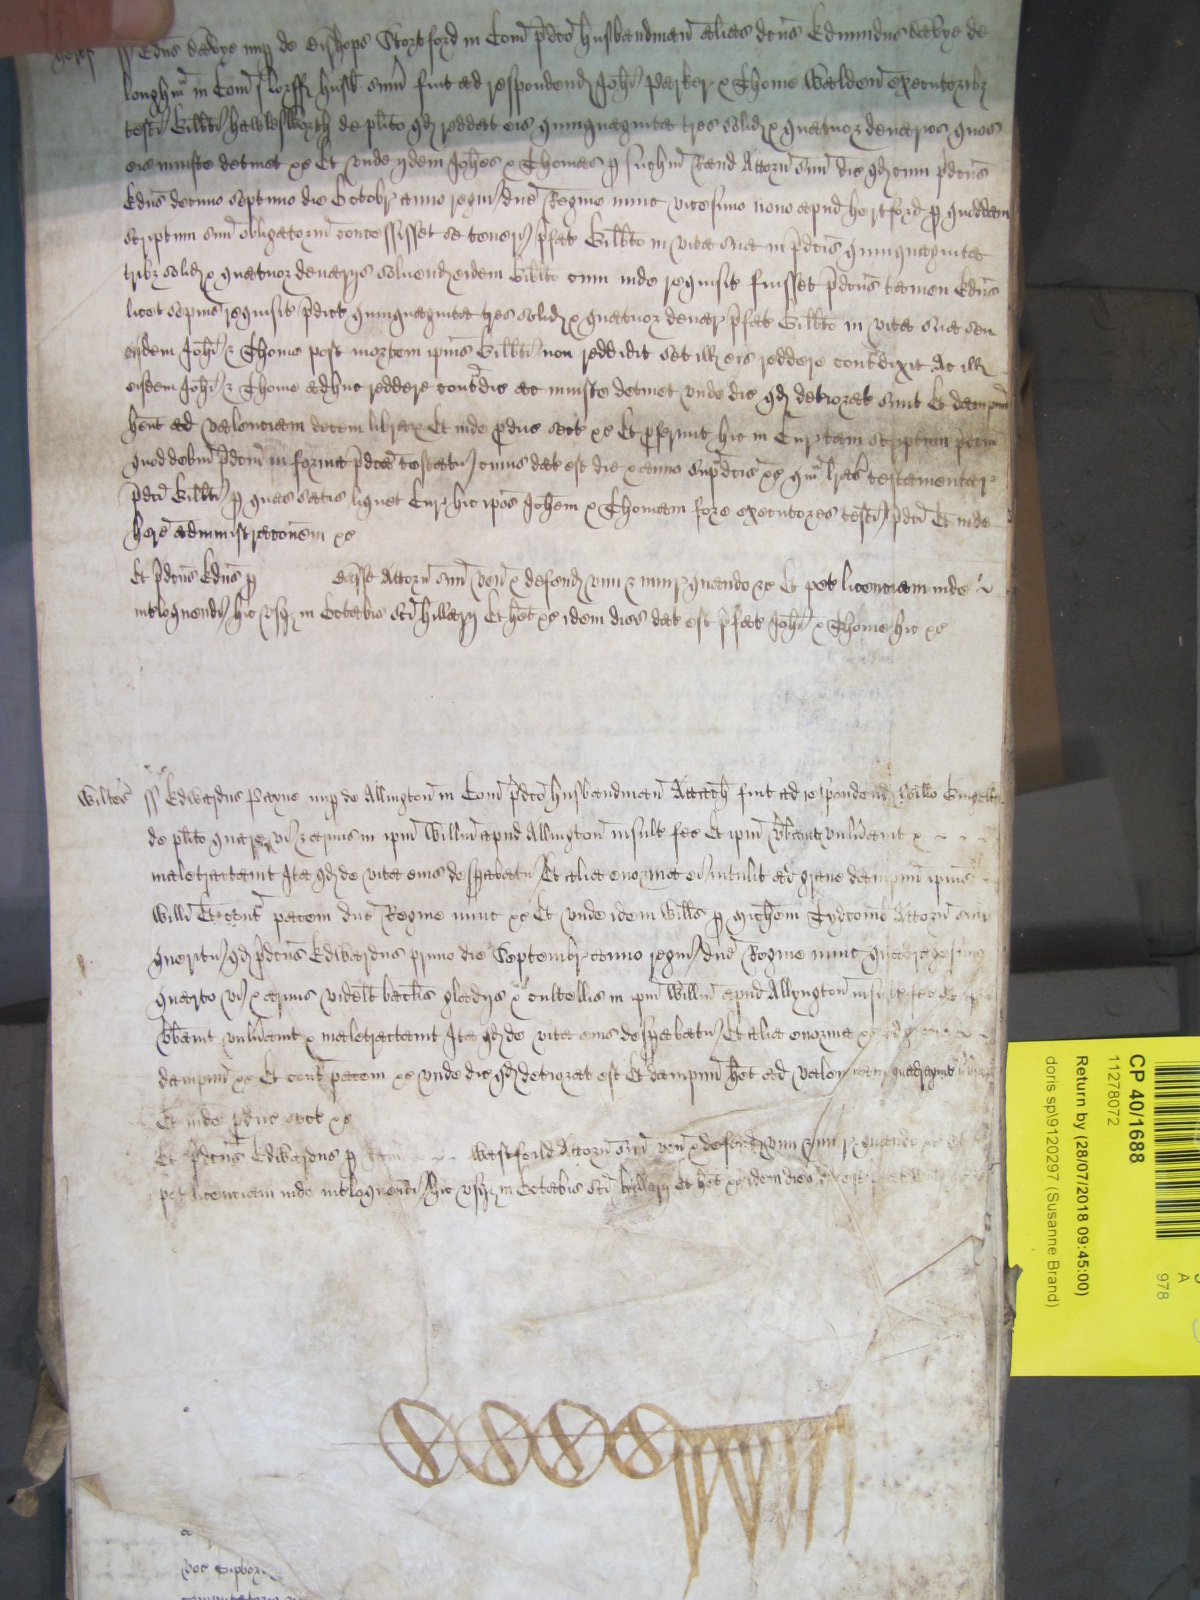 ss Edus Davye nup de Bishops Stortford in Com pdco husbandman alias dcus Edmundus Davye de
in Com husb sum fuit ad respondend Johi Parker & Thome Walden executoribz
testi Gilbti Hawlesworth de plito qd reddat eis quinquaginta tres solid & quatuor denarios quos
eis iniuste detinet &c Et unde ijdem Johes & Thomas p Rand Attorn suu dic qd cum pdcus
Edus decimo septimo die Octobr anno regni dne Regine nunc vicesimo nono apud Hertford p quoddam
scriptum suu obligatoriu concessisset se teneri pfat Gilbto in vita sua in pdcis quinquaginta
tribz solid & quatuor denarijs solvend eidem Gilbto cum inde requisit fuisset pdcus tamen Edus
licet sepius requisit pdict quinquaginta tres solid & quatuor denar pfat Gilbto in vita sua seu
eisdem Johi & Thome post mortem ipius Gilbti non reddidit set ill eis reddere contdixit Ac ill
eisdem Johi & Thome adhuc reddere contdic ac iniuste detinet unde dic qd deteriorat sunt Et dampnu
hent ad valenciam decem librar Et inde pduc sect &c Et pferunt hic in Cur tam scriptum pdcm
quod debitu pdcm in forma pdca testatur cuius dat est die & anno supdcis &c qm lras testamentar
pdci Gilbti p quas satis liquet Cur hic ipos Johem & Thomam fore executores testi pdci Et inde
here administracoem &c
Et pdcus Edus p Attorn suu ven & defend vim & iniur quando &c Et pet licenciam inde
intloquendi hic usqz in Octabis sci Hillarij Et het &c idem dies dat est pfat Johi & Thome hic &c
Wiltes ss Edwardus Payne nup de Allington in Com pdco husbandman Attach fuit ad respondend Willo
de plito quare vi & armis in ipm Willm apud Allington insult fec Et ipm vbavit vulnavit &
maletractavit Ita qd de vita eius despabatr Et alia enormia ei intulit ad grave dampnum ipius
Willi Et cont pacem dne Regine nunc &c Et unde idem Wills p Michem Tydcomb Attorn suu
queritr qd pdcus Edwardus primo die Septembr anno regni dne Regine nunc quadragesimo
quarto vi & armis videlt baclis gladijs & cultellis in ipm Willm apud Allyngton insult fec Et ipm
vbavit vulnavit & maletractavit Ita qd de vita eius despabatr Et alia enormia &c ad grave
dampnum &c Et cont pacem &c unde dic qd deteriorat est Et dampnum het ad valenciam quadraginta librar
Et inde pduc sect &c
Et pdcus Edwardus p Westfeild Attorn suu ven & defend vim & iniur quando &c Et
pet licenciam inde intloquendi hic usqz in Octabis sci Hillarij Et het &c idem dies dat est
CP 40/1688
11278072
Return by (28/07/2018 09:45:00)
doris sp\9120297 (Susanne Brand)
A
978